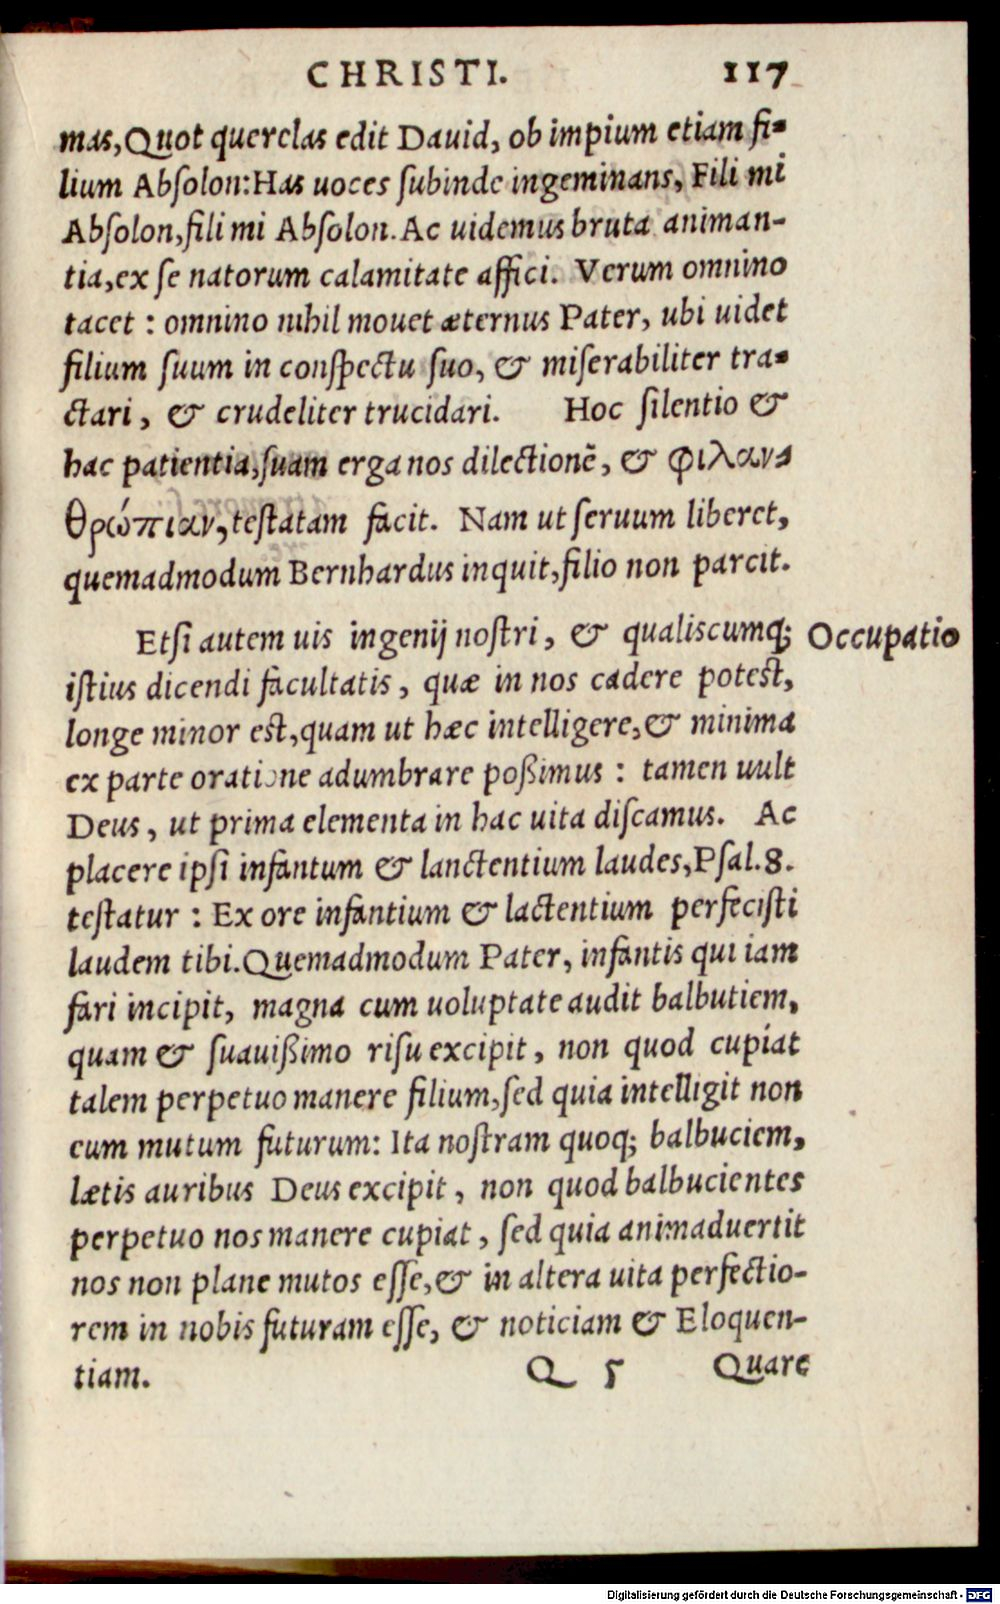 CHRISTI. 117
mas, Quot querelas edit Dauid, ob impium etiam fi-
lium Absolon: Has uoces subinde ingeminans, Fili mi
Absolon, fili mi Absolon. Ac uidemus bruta animan-
tia, ex se natorum calamitate affici. Verum omnino
tacet : omnino nihil mouet æternus Pater, ubi uidet
filium suum in conspectu suo, & miserabiliter tra-
ctari, & crudeliter trucidari. Hoc silentio &
hac patientia, suam erga nos dilectionẽ, & φιλαν-
θρώπιαν, testatam facit. Nam ut seruum liberet,
quemadmodum Bernhardus inquit, filio non parcit.
Etsi autem uis ingenij nostri, & qualiscumq; Occupatio
istius dicendi facultatis, quæ in nos cadere potest,
longe minor est, quam ut hæc intelligere, & minima
ex parte oratione adumbrare poßimus : tamen uult
Deus, ut prima elementa in hac uita discamus. Ac
placere ipsi infantum & lanctentium laudes, Psal. 8.
testatur : Ex ore infantium & lactentium perfecisti
laudem tibi. Quemadmodum Pater, infantis qui iam
fari incipit, magna cum uoluptate audit balbutiem,
quam & suauißimo risu excipit, non quod cupiat
talem perpetuo manere filium, sed quia intelligit non
eum mutum futurum: Ita nostram quoq; balbuciem,
lætis auribus Deus excipit, non quod balbucientes
perpetuo nos manere cupiat, sed quia animaduertit
nos non plane mutos esse, & in altera uita perfectio-
rem in nobis futuram esse, & noticiam & Eloquen-
tiam. Q 5 Quare
Digitalisierung gefördert durch die Deutsche Forschungsgemeinschaft - DFG